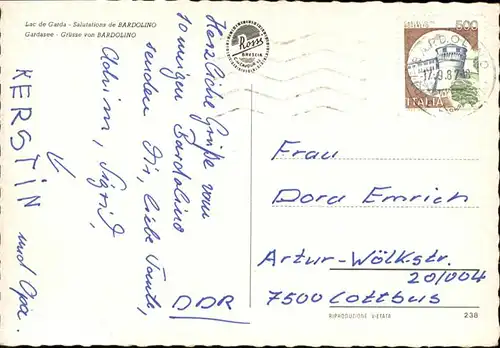 Lac de Garda - Salutations de BARDOLINO
Gardasee - Grüsse von BARDOLINO
Herzliche Grüße vom
sonnigen Bardolino
senden Dir, liebe Tante,
Achim, Sigrid,
KERSTIN
und Opa.
DDR
Rossi
BRESCIA
500
BARDOLINO
17.9.87
ITALIA
Frau
Dora Emrich
Artur-Wölkstr.
20/004
7500 Cottbus
RIPRODUZIONE VIETATA
238